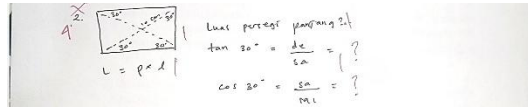 2.
4
30° 60° 30°
30° 30°
Luas persegi panjang ?
L = p x l
tan 30° = de/sa = ?
cos 30° = sa/mi = ?